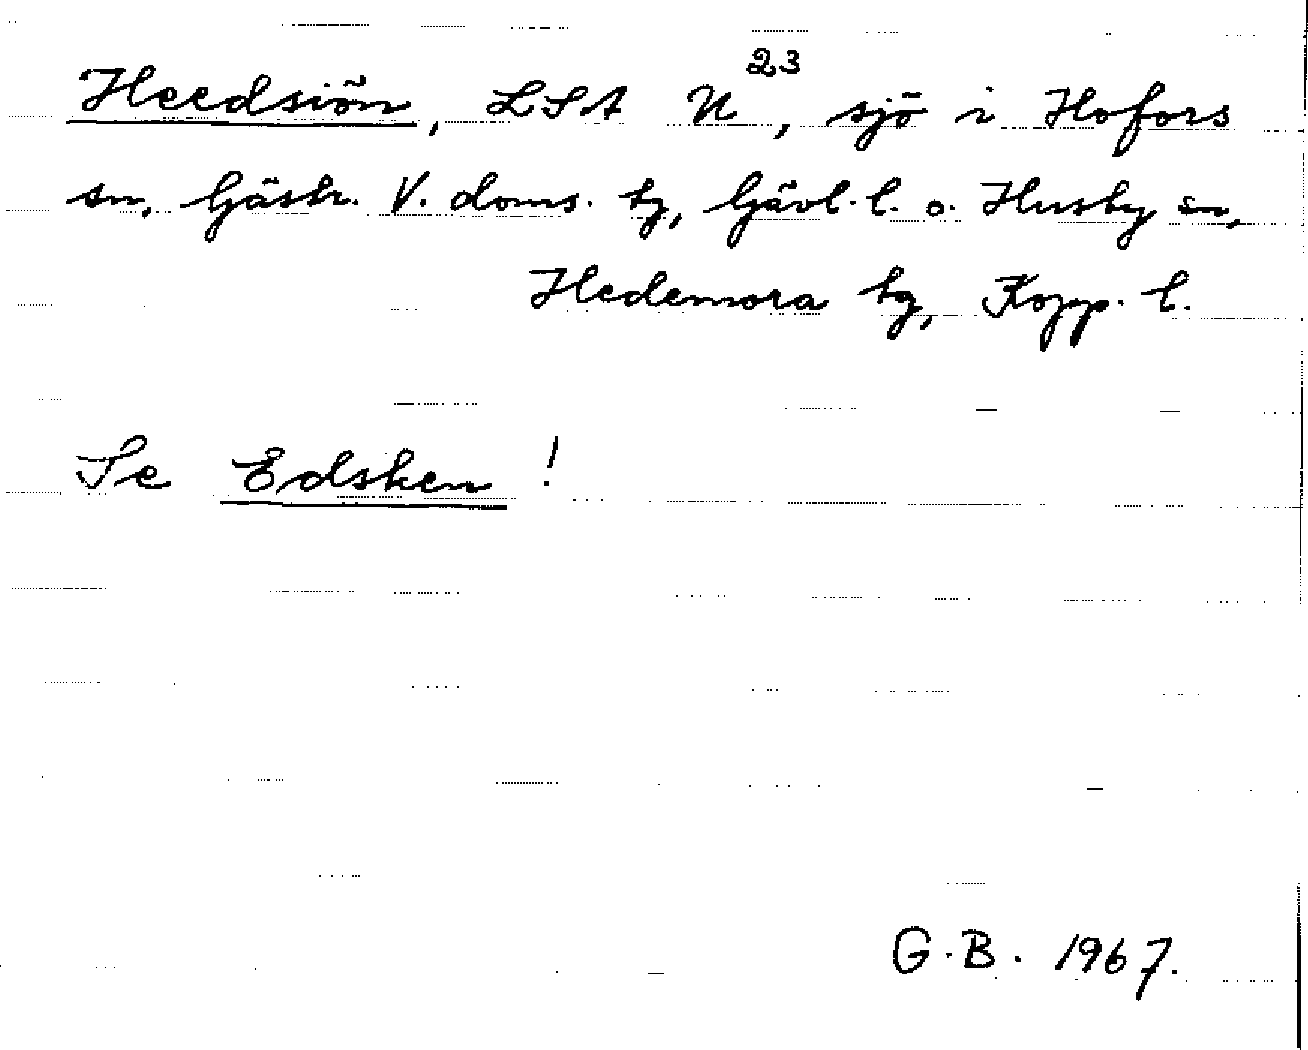 Heedsiön, LSA U²³, sjö i Hofors
sn, Gästr. V. doms. tg, Gävl. l. o. Husby sn,
Hedemora tg, Kopp. l.
Se Edsken!
G.B. 1967.